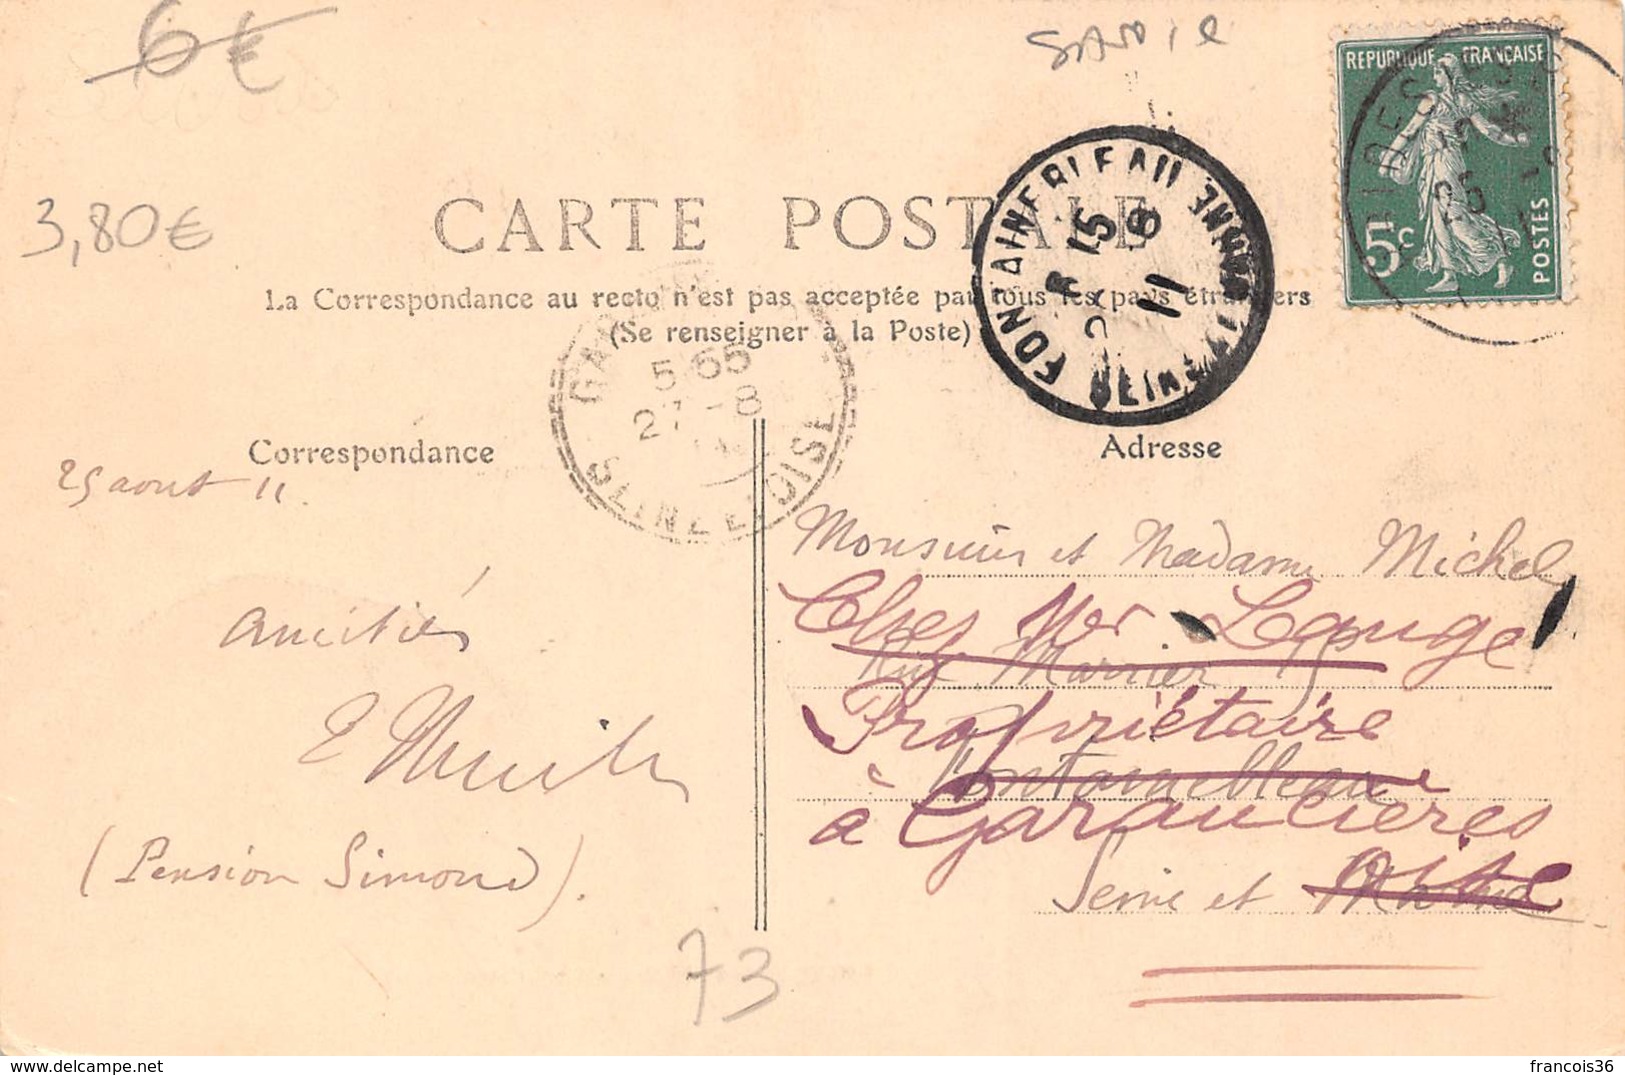 6€
SAVOIE
RÉPUBLIQUE FRANÇAISE
5c
POSTES
3,80€
CARTE POSTALE
La Correspondance au recto n'est pas acceptée par tous les pays étrangers
(Se renseigner à la Poste)
FONTAINEBLEAU
SEINE ET MARNE
15
8
11
5 55
27 - 8
SEINE ET OISE
Correspondance
Adresse
25 aout 11
Amitiés
(Pension Simond).
Monsieur et Madame Michel
Rue Marrier
Fontainebleau
Seine et Marne
Chez Mer Lauge
Propriétaire
à Garancières
Oise
73
francois36